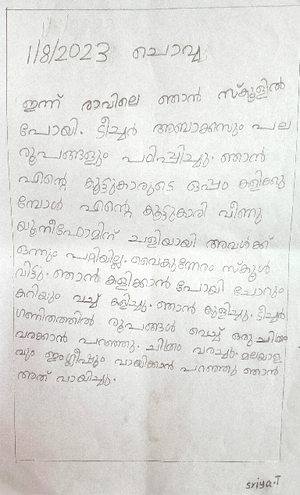 1/8/2023 ചൊവ്വ
ഇന്ന് രാവിലെ ഞാൻ സ്കൂളിൽ
പോയി. ടീച്ചർ അബാക്കസും പല
രൂപങ്ങളും പഠിപ്പിച്ചു. ഞാൻ
എന്റെ കൂട്ടുകാരുടെ ഒപ്പം കളിക്കു
മ്പോൾ എന്റെ കൂട്ടുകാരി വീണു
യൂനീഫോമിന് ചളിയായി അവൾക്ക്
ഒന്നും പറ്റിയില്ല. വൈകുന്നേരം സ്കൂൾ
വിട്ടു. ഞാൻ കളിക്കാൻ പോയി ചോറും
കറിയും വച്ച് കളിച്ചു. ഞാൻ കുളിച്ചു. ടീച്ചർ
ഗണിതത്തിൽ രൂപങ്ങൾ വെച്ച് ഒരു ചിത്രം
വരക്കാൻ പറഞ്ഞു. ചിത്രം വരച്ചു. മലയാള
വും ഇംഗ്ലീഷും വായിക്കാൻ പറഞ്ഞു ഞാൻ
അത് വായിച്ചു.
sriya.T